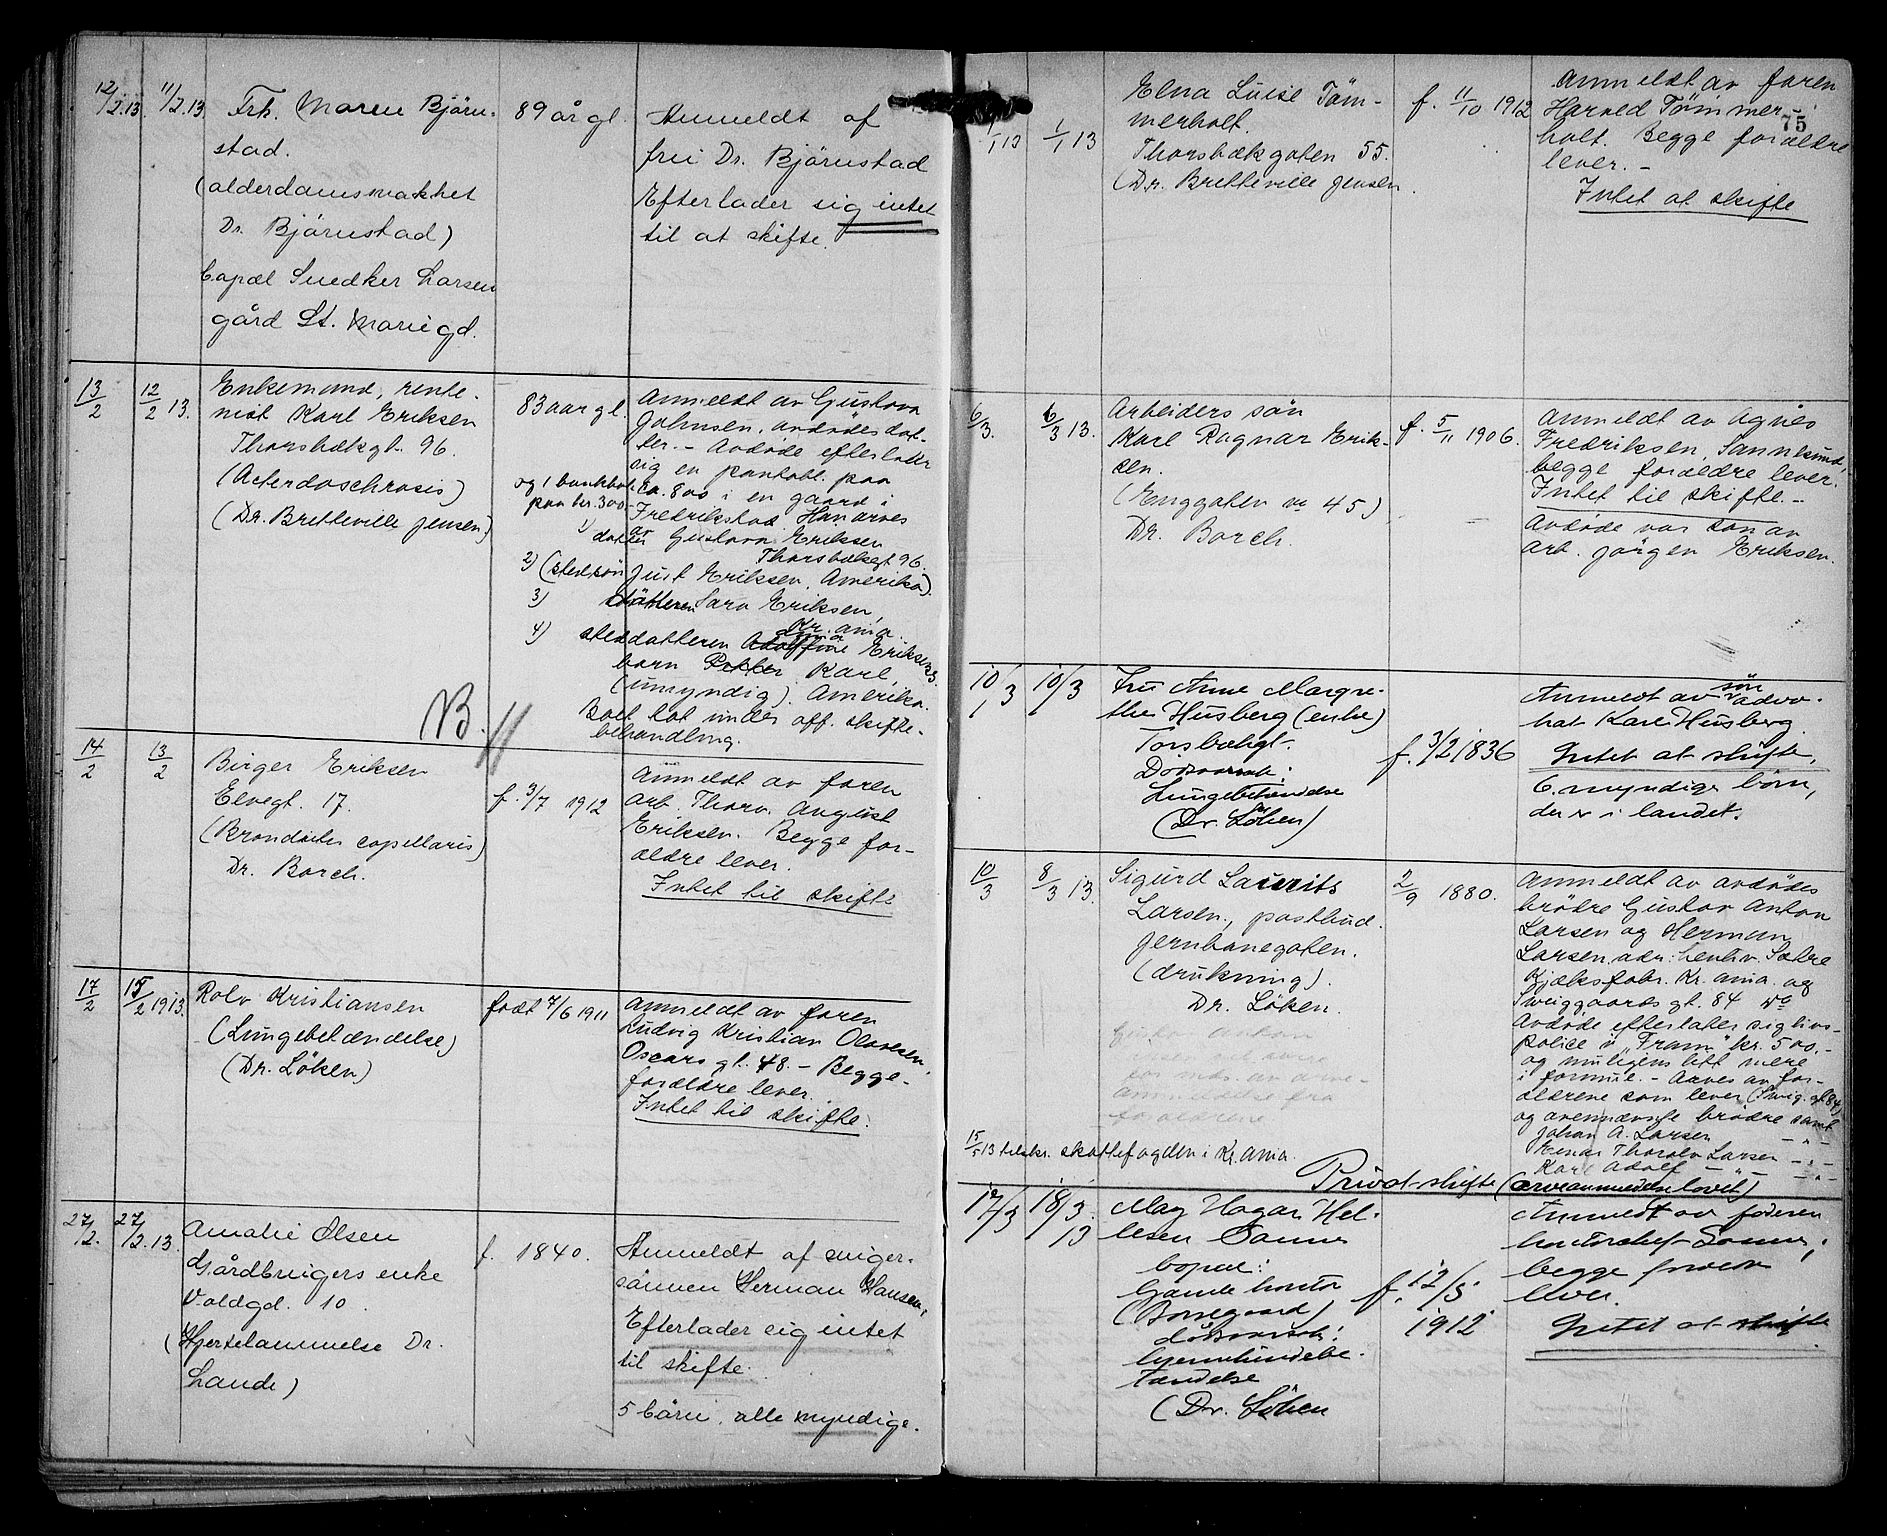 12/2.13 11/2.13 Frk. Maren Bjørn-
stad.
(alderdomsvakhet
Dr. Bjørnstad)
bopæl Snedker Larsen
gård St. Mariegd.
89 år gl.
Anmeldt af
fru Dr. Bjørnstad
Efterlader sig intet
til at skifte.
13/2 12/2 13. Enkemand, rente-
nist Karl Eriksen
Thorsbækgt. 96.
(Dr. Bretteville Jensen)
83 aar gl.
Anmeldt av Gustava
Johnsen, avdødes dat-
ter. - Avdøde efterlader
sig en pantobl. paa
ca. 800 i en gaard i
og 1 bankbok
paa kr. 300.
Fredrikstad. Han arves
av
1) datter Gustava Eriksen
Thorsbækgt 96.
2) (stedsøn Just Eriksen, Amerika).
3) datteren Sara Eriksen,
Kr.ania.
4) steddatteren Eriksens
barn Karl,
(umyndig). Amerika.
Boet tat under off. skifte-
behandling.
B.
14/2 13/2 Birger Eriksen
Elvegt. 17.
Dr. Borch.
f. 3/7 1912
Anmeldt av faren
arb. Thorv. August
Eriksen. Begge for-
ældre lever.
Intet til skifte
17/2 15/2 1913. Rolv Kristiansen
(Lungebetændelse)
(Dr. Löken)
født 7/6 1911
Anmeldt av faren
Ludvig Kristian Olavesen,
Oscars gt. 48. - Begge
forældre lever.
Intet til skifte.
27/2. 27/2.13. Amalie Olsen
Gårdbrugers enke
Voldgd. 10.
(Hjertelammelse Dr.
Lande)
f. 1840.
Anmeldt af sviger-
sønnen Herman Hansen,
Efterlader sig intet
til skifte.
5 børn, alle myndige.
75
1/1 13 1/1 13 Elna Luise Töm-
merholt.
Thorsbækgaten 55.
(Dr. Bretteville Jensen.
f. 11/10 1912
Anmeldt av faren
Harald Tömmer-
holt. Begge forældre
lever. -
Intet at skifte
6/3. 6/3 13. Arbeiders søn
Karl Ragnar Erik-
sen.
(Enggaten no 45)
Dr. Borch.
f. 5/11 1906.
Anmeldt av Agnes
Fredriksen, Sannesund,
begge forældre lever.
Intet til skifte. -
Avdøde var søn av
arb. Jørgen Eriksen.
10/3 10/3 Fru Anne Margre-
the Husberg (enke)
Torsbækgt.
Dødsaarsak:
Lungebetændelse
(Dr. Löken)
f. 3/2 1836
Anmeldt av søn advo-
kat Karl Husberg
Intet at skifte,
6 myndige børn,
der er i landet.
10/3 8/3 13. Sigurd Laurits
Larsen, postbud.
Jernbanegaten.
(drukning).
Dr. Löken.
2/9 1880.
Anmeldt av avdødes
brødre Gustav Anton
Larsen og Herman
Larsen, adr: henhv. Sætre
Kjæksfabr. Kr.ania. og
Sweiggaards gt. 84 do
Avdøde efterlater sig livs-
police i "Fram" kr. 500.-
og muligens litt mere
i formue. - Arves av for-
ældrene som lever (Sweig. gt 84)
og ovennævnte brødre samt
Johan A. Larsen -"-
Einar Thorolv Larsen -"-
Karl Adolf -"- -"-
15/5 13 tilskr. skattefogden i Kr.ania.
Privat skifte (arveanmeldelse lovet)
17/3 18/3. 13 May Hagar Hel-
lesen Sannes
bopæl:
Gamle kontor
(Borregaard)
dødsaarsak:
hjernehindebe-
tændelse
(Dr. Löken
f. 12/5
1912
Anmeldt av faderen
kontorchef Sannes,
begge forældre
lever.
Intet at skifte